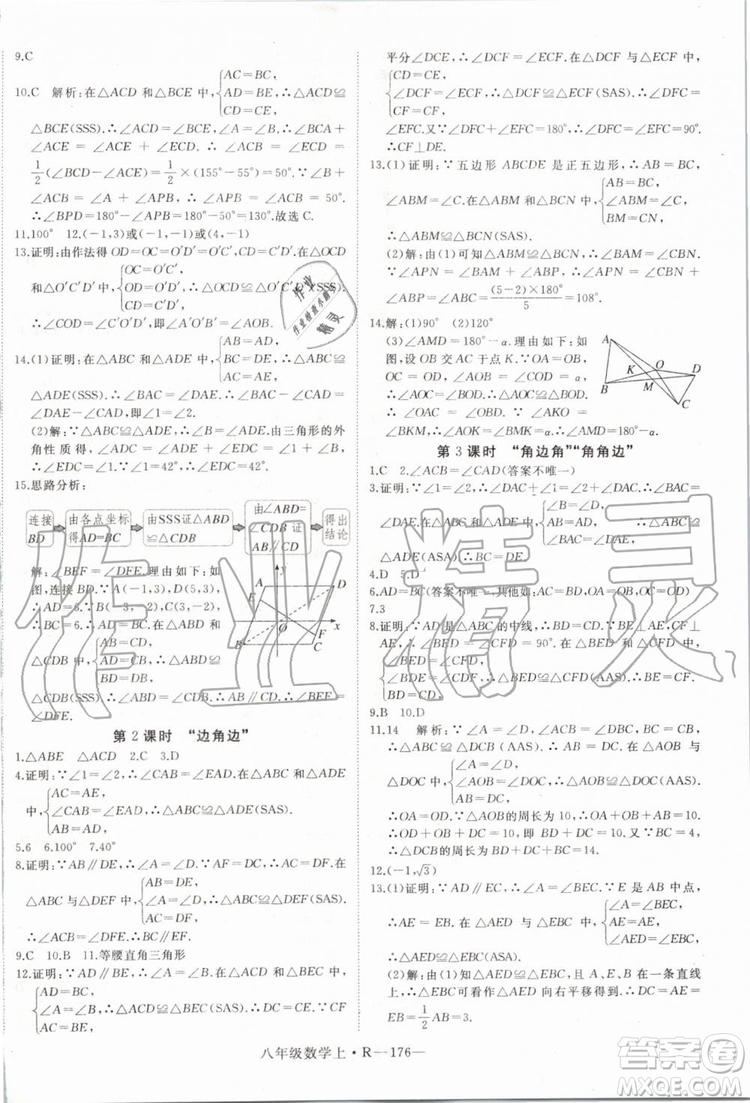 9.C
10.C 解析:在△ACD 和△BCE 中,{AC=BC, AD=BE, CD=CE, ∴△ACD≌
△BCE(SSS).∴∠ACD=∠BCE,∠A=∠B.∴∠BCA+
∠ACE=∠ACE+∠ECD.∴∠ACB=∠ECD=
1/2(∠BCD-∠ACE)=1/2×(155°-55°)=50°.∵∠B+
∠ACB=∠A+∠APB,∴∠APB=∠ACB=50°.
∴∠BPD=180°-50°=130°.故选C.
11.100° 12.(-1,3)或(-1,-1)或(4,-1)
13.证明:由作法得 OD=OC=O′D′=O′C′,CD=C′D′.在△OCD
和△O′C′D′中,{OC=O′C′, OD=O′D′, CD=C′D′,
∴∠COD=∠C′O′D′,即∠A′O′B′=∠AOB.
14.(1)证明:在△ABC 和△ADE 中,{AB=AD, BC=DE, AC=AE, ∴△ABC≌
△ADE(SSS).∴∠BAC=∠DAE.∴∠DAE-
∠CAD=∠BAC-∠CAD,即∠1=∠2.
(2)解:∵△ABC≌△ADE,∴∠B=∠ADE.由三角形的外
角性质得∠ADE+∠EDC=∠B+∠1,∴∠EDC=∠1.
∵∠1=∠2,∴∠EDC=∠2.
15.思路分析:
连接BD 由各点坐标得AD=BC 由SSS证△ABD≌△CDB 由∠ABD=∠CDB 证AB∥CD 得出结论
解:∠BEF=∠DFE.理由如下:如
图,连接BD.∵A(-1,3),D(5,3),
∴AD=6.∵B(-5,-3),C(3,-3)
∴BC=6.∴AD=BC.在△ABD 和
△CDB 中,{AB=CD, AD=CB, BD=DB, ∴△ABD≌
△CDB(SSS).∴∠ABD=∠CDB.∴AB∥CD.∴∠BEF=
∠DFE.
第 2 课时 “边角边”
1.△ABE △ACD 2.C 3.D
4.证明:∵∠1=∠2,∴∠CAB=∠EAD.在△CAB 与△EAD
中,{AC=AE, ∠CAB=∠EAD, AB=AD, ∴△CAB≌△EAD(SAS).∴BC=DE.
5.6 6.100° 7.40°
8.证明:∵AB∥DE,∴∠A=∠D.∵AF=DC,∴AC=DF.
在△ABC与△DEF中,{AB=DE, ∠A=∠D, AC=DF, ∴△ABC≌△DEF(SAS).
∴∠ACB=∠DFE.∴BC∥EF.
9.C 10.B 11.等腰直角三角形
12.证明:∵AD∥BE,∴∠A=∠B.在△ACD 和△BEC 中,
{AD=BC, ∠A=∠B, AC=BE, ∴△ACD≌△BEC(SAS).∴DC=CE.∵CF
平分∠DCE,∴∠DCF=∠ECF.在△DCF 与△ECF中,
{CD=CE, ∠DCF=∠ECF, CF=CF, ∴△DCF≌△ECF(SAS).∴∠DFC=
∠EFC.又∵∠DFC+∠EFC=180°,∴∠DFC=90°.
∴CF⊥DE.
13.(1)证明:∵五边形 ABCDE 是正五边形,∴AB=BC,
∠ABM=∠C.在△ABM 和△BCN 中,{AB=BC, ∠ABM=∠C, BM=CN,
∴△ABM≌△BCN(SAS).
(2)解:由(1)可知△ABM≌△BCN,∴∠BAM=∠CBN.
∵∠APN=∠BAM+∠ABP,∴∠APN=∠CBN+
∠ABP=∠ABC=(5-2)×180°/5=108°.
14.解:(1)90° (2)120°
(3)∠AMD=180°-α.理由如下:如
图,设 OB 交AC 于点 K.∵∠AOB=
∠COD=α,∴∠AOC=∠BOD.∵OA=
OB,OC=OD,∴△AOC≌△BOD.
∴∠OAC=∠OBD.∵∠AKO=
∠BKM,∴∠AOK=∠BMK=α.∴∠AMD=180°-α.
第 3 课时 “角边角”“角角边”
1.C 2.∠ACB=∠CAD(答案不唯一)
3.证明:∵∠1=∠2,∴∠1+∠EAC=∠2+∠EAC.∴∠BAC=
∠DAE.在△ABC 和△ADE 中,{∠B=∠D, AB=AD, ∠BAC=∠DAE, ∴△ABC≌
△ADE(ASA).∴BC=DE.
4.D 5.D
6.AD=BC(答案不唯一,其他如:AC=BD,OA=OB,OD=OC)
7.3
8.证明:∵AD是△ABC 的中线,∴BD=CD.∵BE⊥AD,CF⊥
AD,∴∠BED=∠CFD=90°.在△BED 与△CFD 中,
{∠BED=∠CFD, ∠BDE=∠CDF, BD=CD, ∴△BED≌△CFD(AAS).∴BE=CF.
9.B 10.D
11.14 解析:∵△ABC≌△DCB,∴∠A=∠D,AB=DC,
∴△ABC≌△DCB.在△AOB 与
△DOC 中,{∠A=∠D, ∠AOB=∠DOC, AB=DC, ∴△AOB≌△DOC(AAS).
∴OA=OD=4.∵△AOB的周长为10,∴△DOC的周长为
10,即 OD+OC+DC=10.∴△DBC 的周长为 OD+
OB+BC+DC=10+4=14.
12.(-1,√3)
13.(1)证明:∵AD∥EC,∴∠A=∠BEC.∵E 是 AB 中点,
∴AE=EB.∵∠AED=∠B,在△AED 和△EBC 中,{∠A=∠BEC, AE=EB, ∠AED=∠B,
∴△AED≌△EBC(ASA).
(2)解:由(1)知△AED≌△EBC,且A,E,B在一条直线
上,∴AD=EC.
八年级数学上·R—176—
作业精灵
答案圈
MXQE.COM